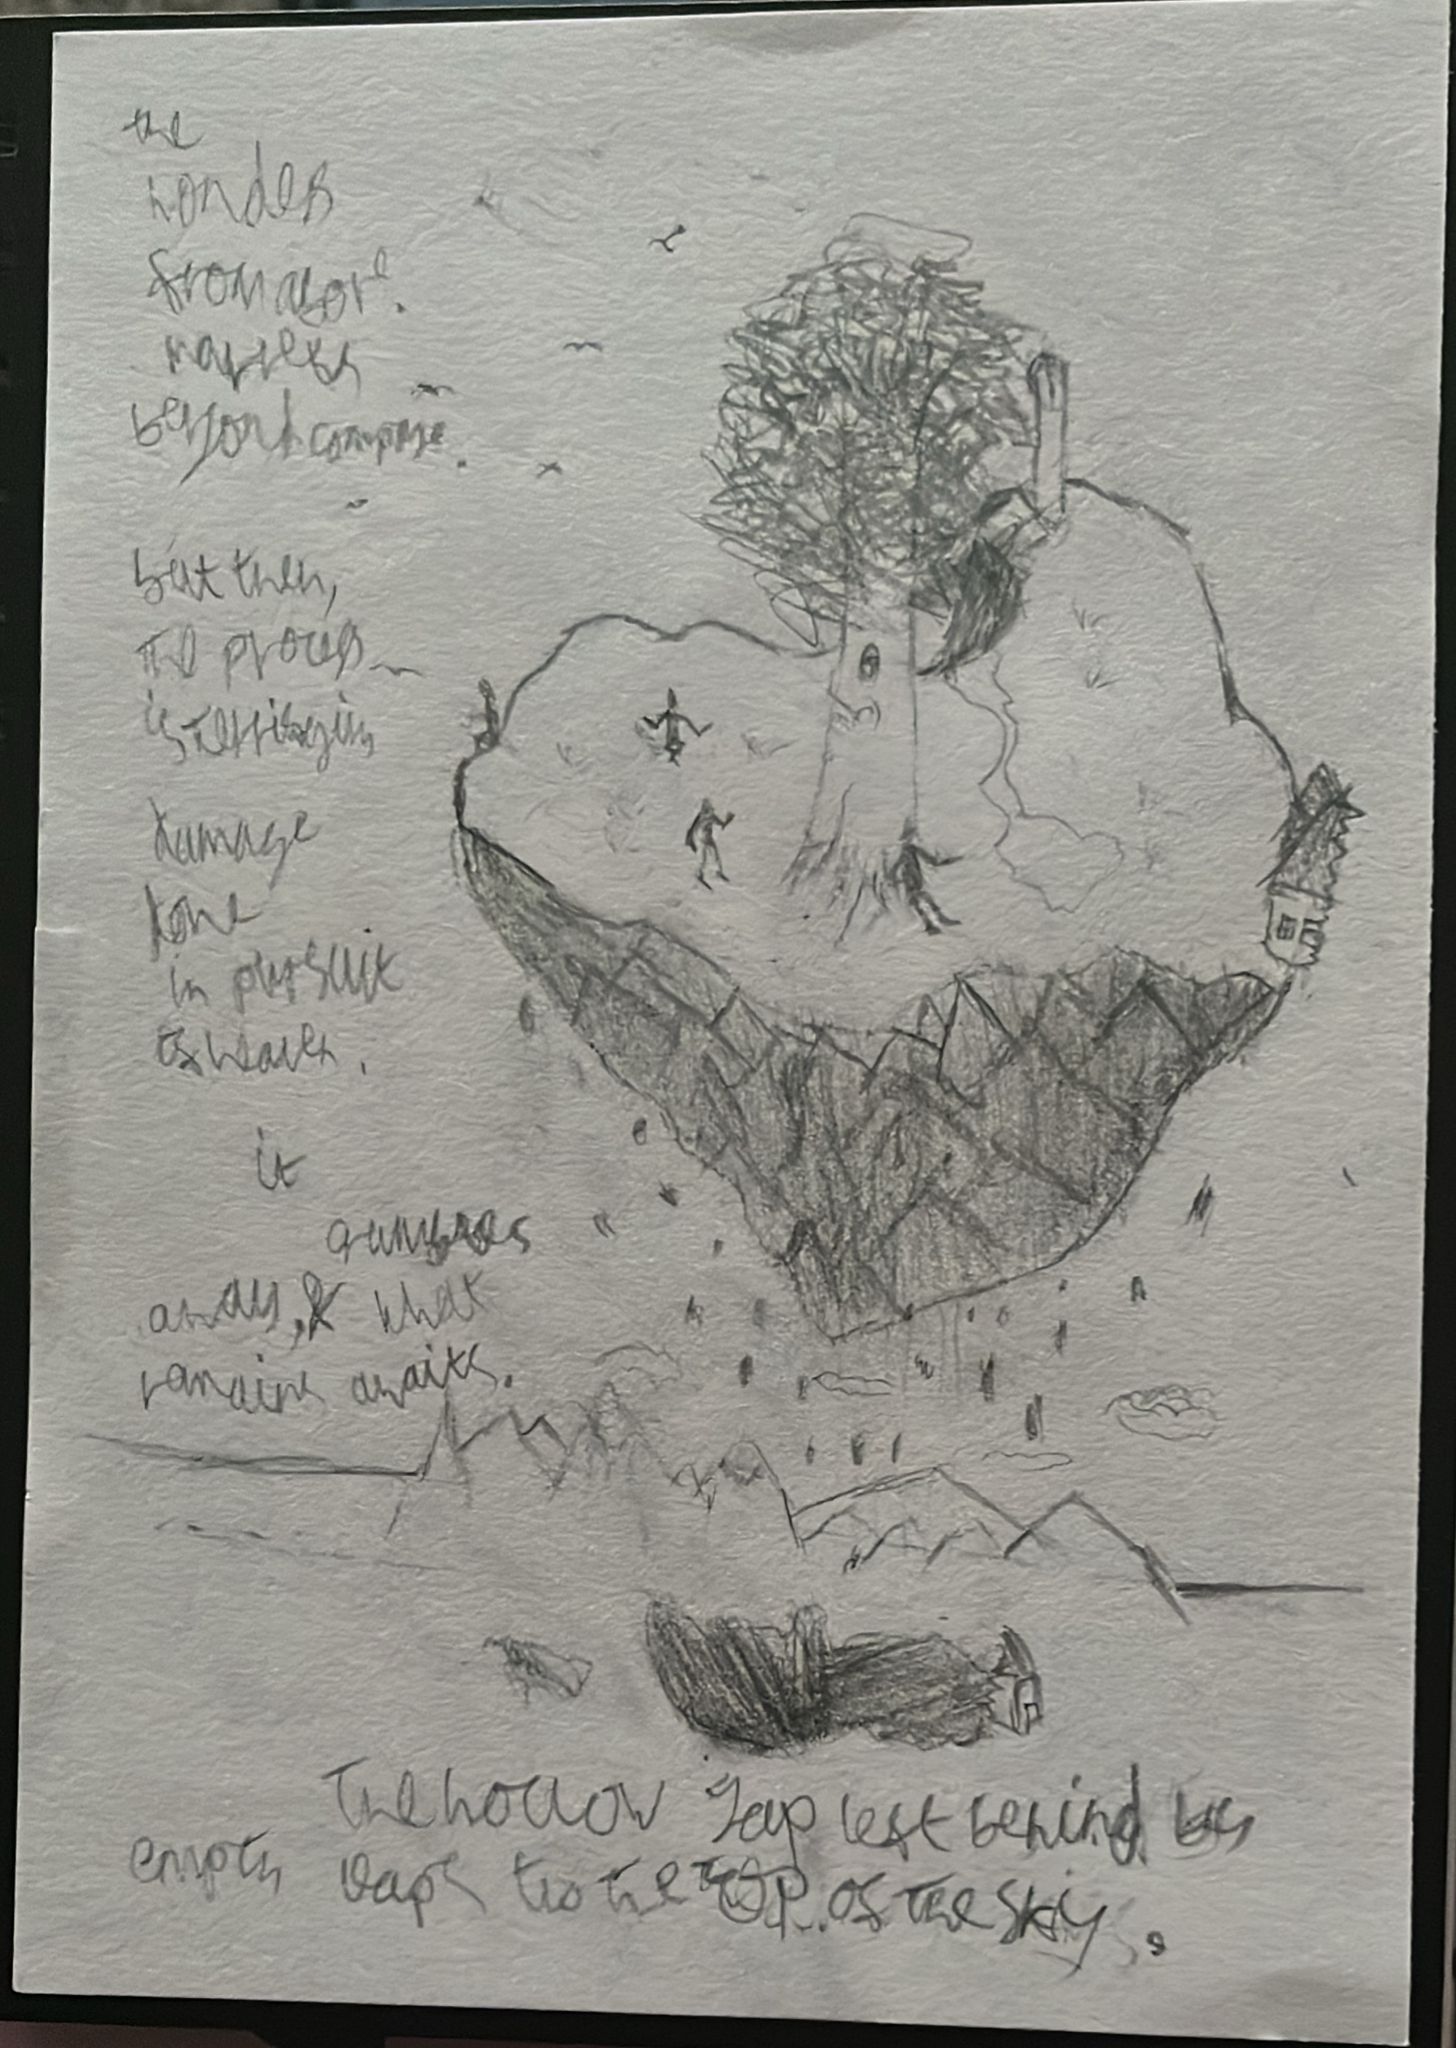 the
wonders
from above.
marvels
beyond compare.
but then,
the process
is terrifying
damage
done
in pursuit
of heaven.
it
crumbles
away, & what
remains awaits.
The hollow gap left behind by
empty gaps to the top of the sky.